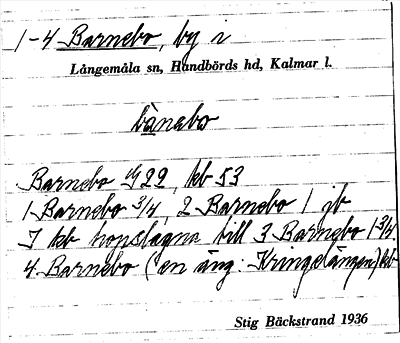 1-4 Barnebo, by i
Långemåla sn, Handbörds hd, Kalmar l.
bànebo
Barnebo G22, kb 53
1 Barnebo 3/4, 2 Barnebo 1 jb
I kb hopslagna till 3 Barnebo 1 3/4
4 Barnebo (en äng: Kringelängen) kb
Stig Bäckstrand 1936